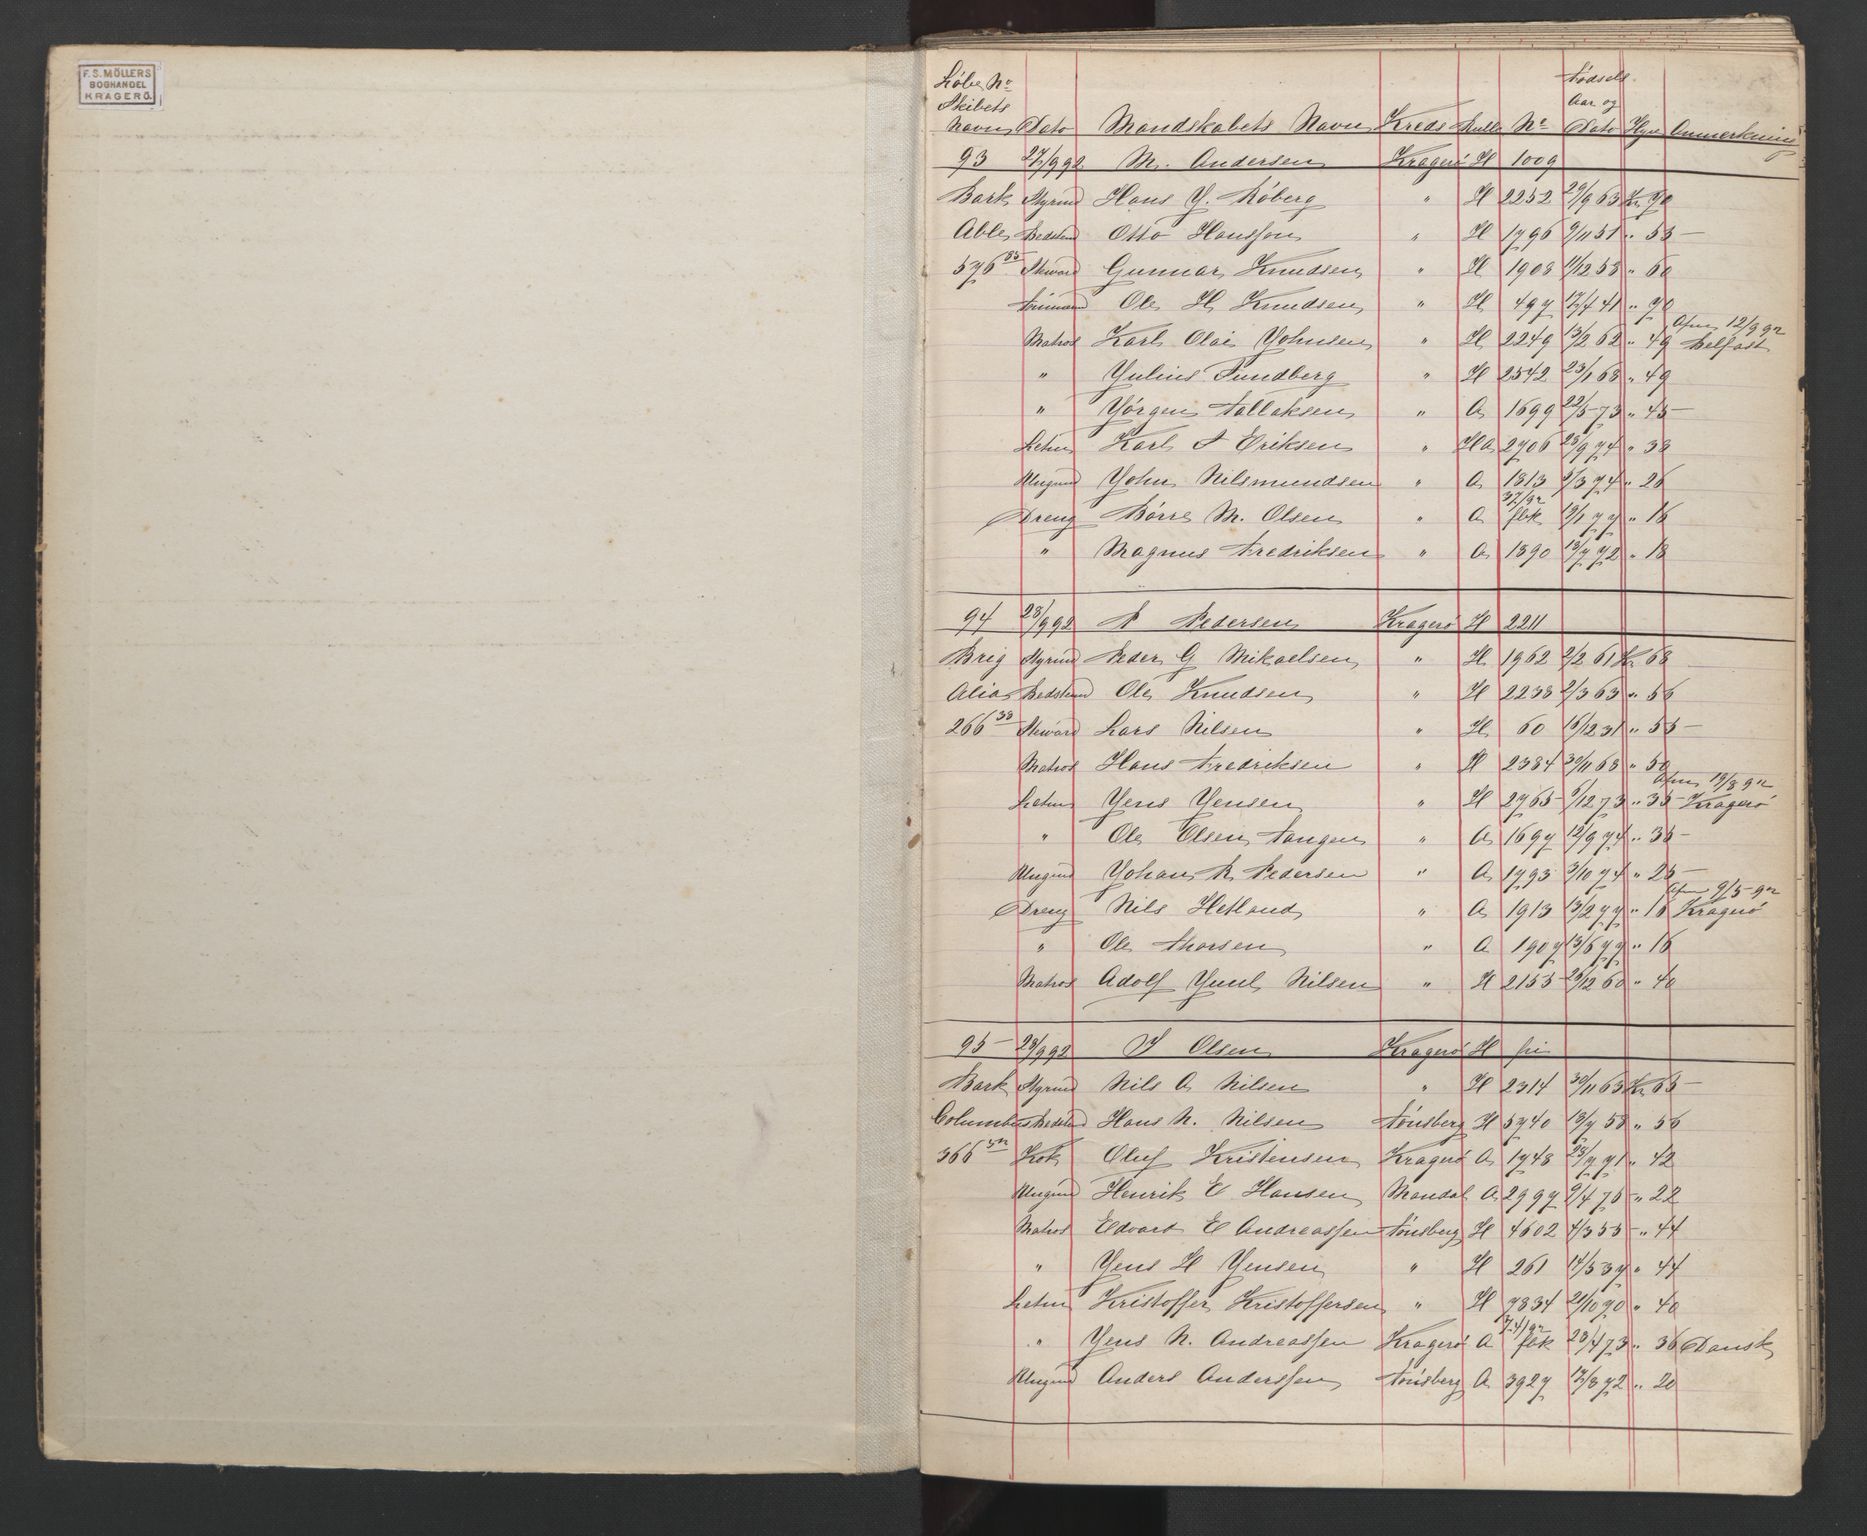 F. S. MÖLLERS
BOGHANDEL
KRAGERÖ.
Løbe No
Skibets
Navn Dato Mandskabets Navn Kreds Rulle No Fødsels Aar og Dato Hyre Anmerkning
93 27/9 92 M. Andersen Kragerø H 1009
Bark Styrmd Hans J. Røberg " H 2252 29/9 63 Kr 70
Able Bedstmd Otto Hansson " H 1796 9/11 51 " 55
576 85 Stewart Gunnar Knudsen " H 1908 11/12 58 " 60
Tømmrmd Ole H Knudsen " H 497 17/4 41 " 70
Matros Karl Olai Johnsen " H 2249 13/2 62 " 49 Afm 12/9 92 Belfast
" Julius Sundberg " H 2542 23/1 68 " 49
" Jørgen Tallaksen " A 1699 22/5 73 " 45
Letm Karl A Eriksen " HA 2706 28/9 74 " 38
Ungmd John Nilsmundsen " A 1813 5/3 74 " 26
Dreng Børre M. Olsen " A 37/92 fbk 19/1 77 " 16
" Magnus Fredriksen " A 1890 13/7 72 " 18
94 28/9 92 A Pedersen Kragerø H 2211
Brig Styrmd Peder G Mikaelsen " H 1962 2/2 61 Kr 68
Alia Bedstmd Ole Knudsen " H 2238 2/3 63 " 56
266 38 Stewart Lars Nilsen " H 60 16/12 31 " 55
Matros Hans Fredriksen " H 2384 30/11 68 " 50
Letm Jens Jensen " H 2765 6/12 73 " 35 Afm 19/8 92 Kragerø
" Ole Olsen Tangen " A 1697 12/9 74 " 35
Ungmd Johan R Pedersen " A 1793 3/10 74 " 25
Dreng Nils Hetland " A 1913 13/2 77 " 16 Afm 9/5 92 Kragerø
" Ole Thorsen " A 1907 13/6 77 " 16
Matros Adolf Juul Nilsen " H 2155 29/12 60 " 40
95 29/9 92 J Olsen Kragerø H fri
Bark Styrmd Nils A Nilsen " H 2314 30/11 63 Kr 65
Columbus Bedstmd Hans N. Nilsen Tønsberg H 5740 19/7 58 " 56
366 52 Kok Oluf Kristensen Kragerø A 1748 28/7 71 " 42
Ungmd Henrik E Hansen Mandal A 2997 9/4 75 " 22
Matros Edvard E Andreassen Tønsberg H 4602 4/3 55 " 44
" Jens H Jensen " H 261 14/5 37 " 44
Letm Kristoffer Kristoffersen " H 7834 21/10 70 " 40
" Jens N. Andreassen Kragerø A 74/92 fbk 28/4 73 " 36 Dansk
Ungmd Anders Anderssen Tønsberg A 3927 17/8 72 " 20